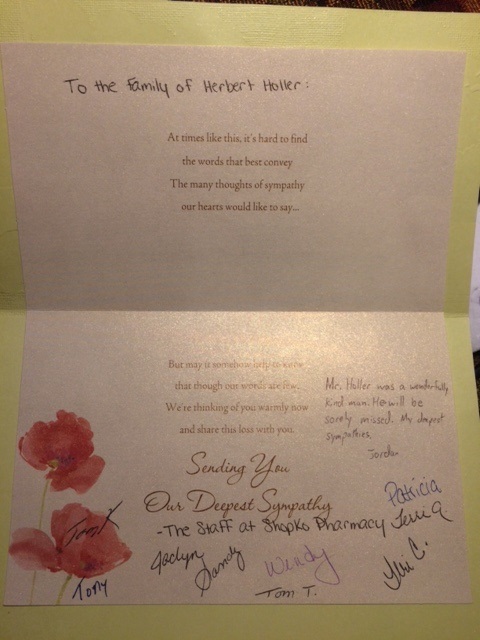 To the Family of Herbert Holler:
At times like this, it's hard to find
the words that best convey
The many thoughts of sympathy
our hearts would like to say...
But may it somehow help to know
that though our words are few,
We're thinking of you warmly now
and share this loss with you.
Mr. Holler was a wonderfully
kind man. He will be
sorely missed. My deepest
sympathies.
Jordan
Sending You
Our Deepest Sympathy
-The Staff at Shopko Pharmacy
Patricia
Terri A
Tom K
Jaclyn
Sandy
Wendy
Tony
Tom T.